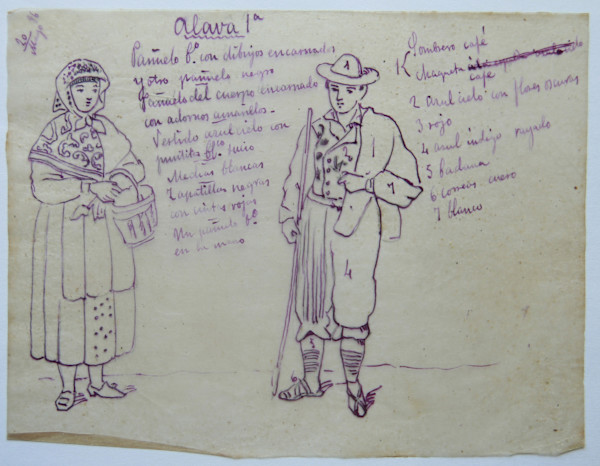 Alava 1ª
Pañuelo b.º con dibujos encarnados
y otro pañuelo negro
Pañuelo del cuerpo encarnado
con adornos amarillos
Vestido azul cielo con
puntitos sucio
Medias blancas
Zapatillas negras
con cintas rojas
Un pañuelo b.º
en la mano
Sombrero café
1 Chaqueta
café
2 azul cielo con flores oscuras
3 rojo
4 azul indigo rayado
5 badana
6 correas cuero
7 blanco
1
1
2
7
4